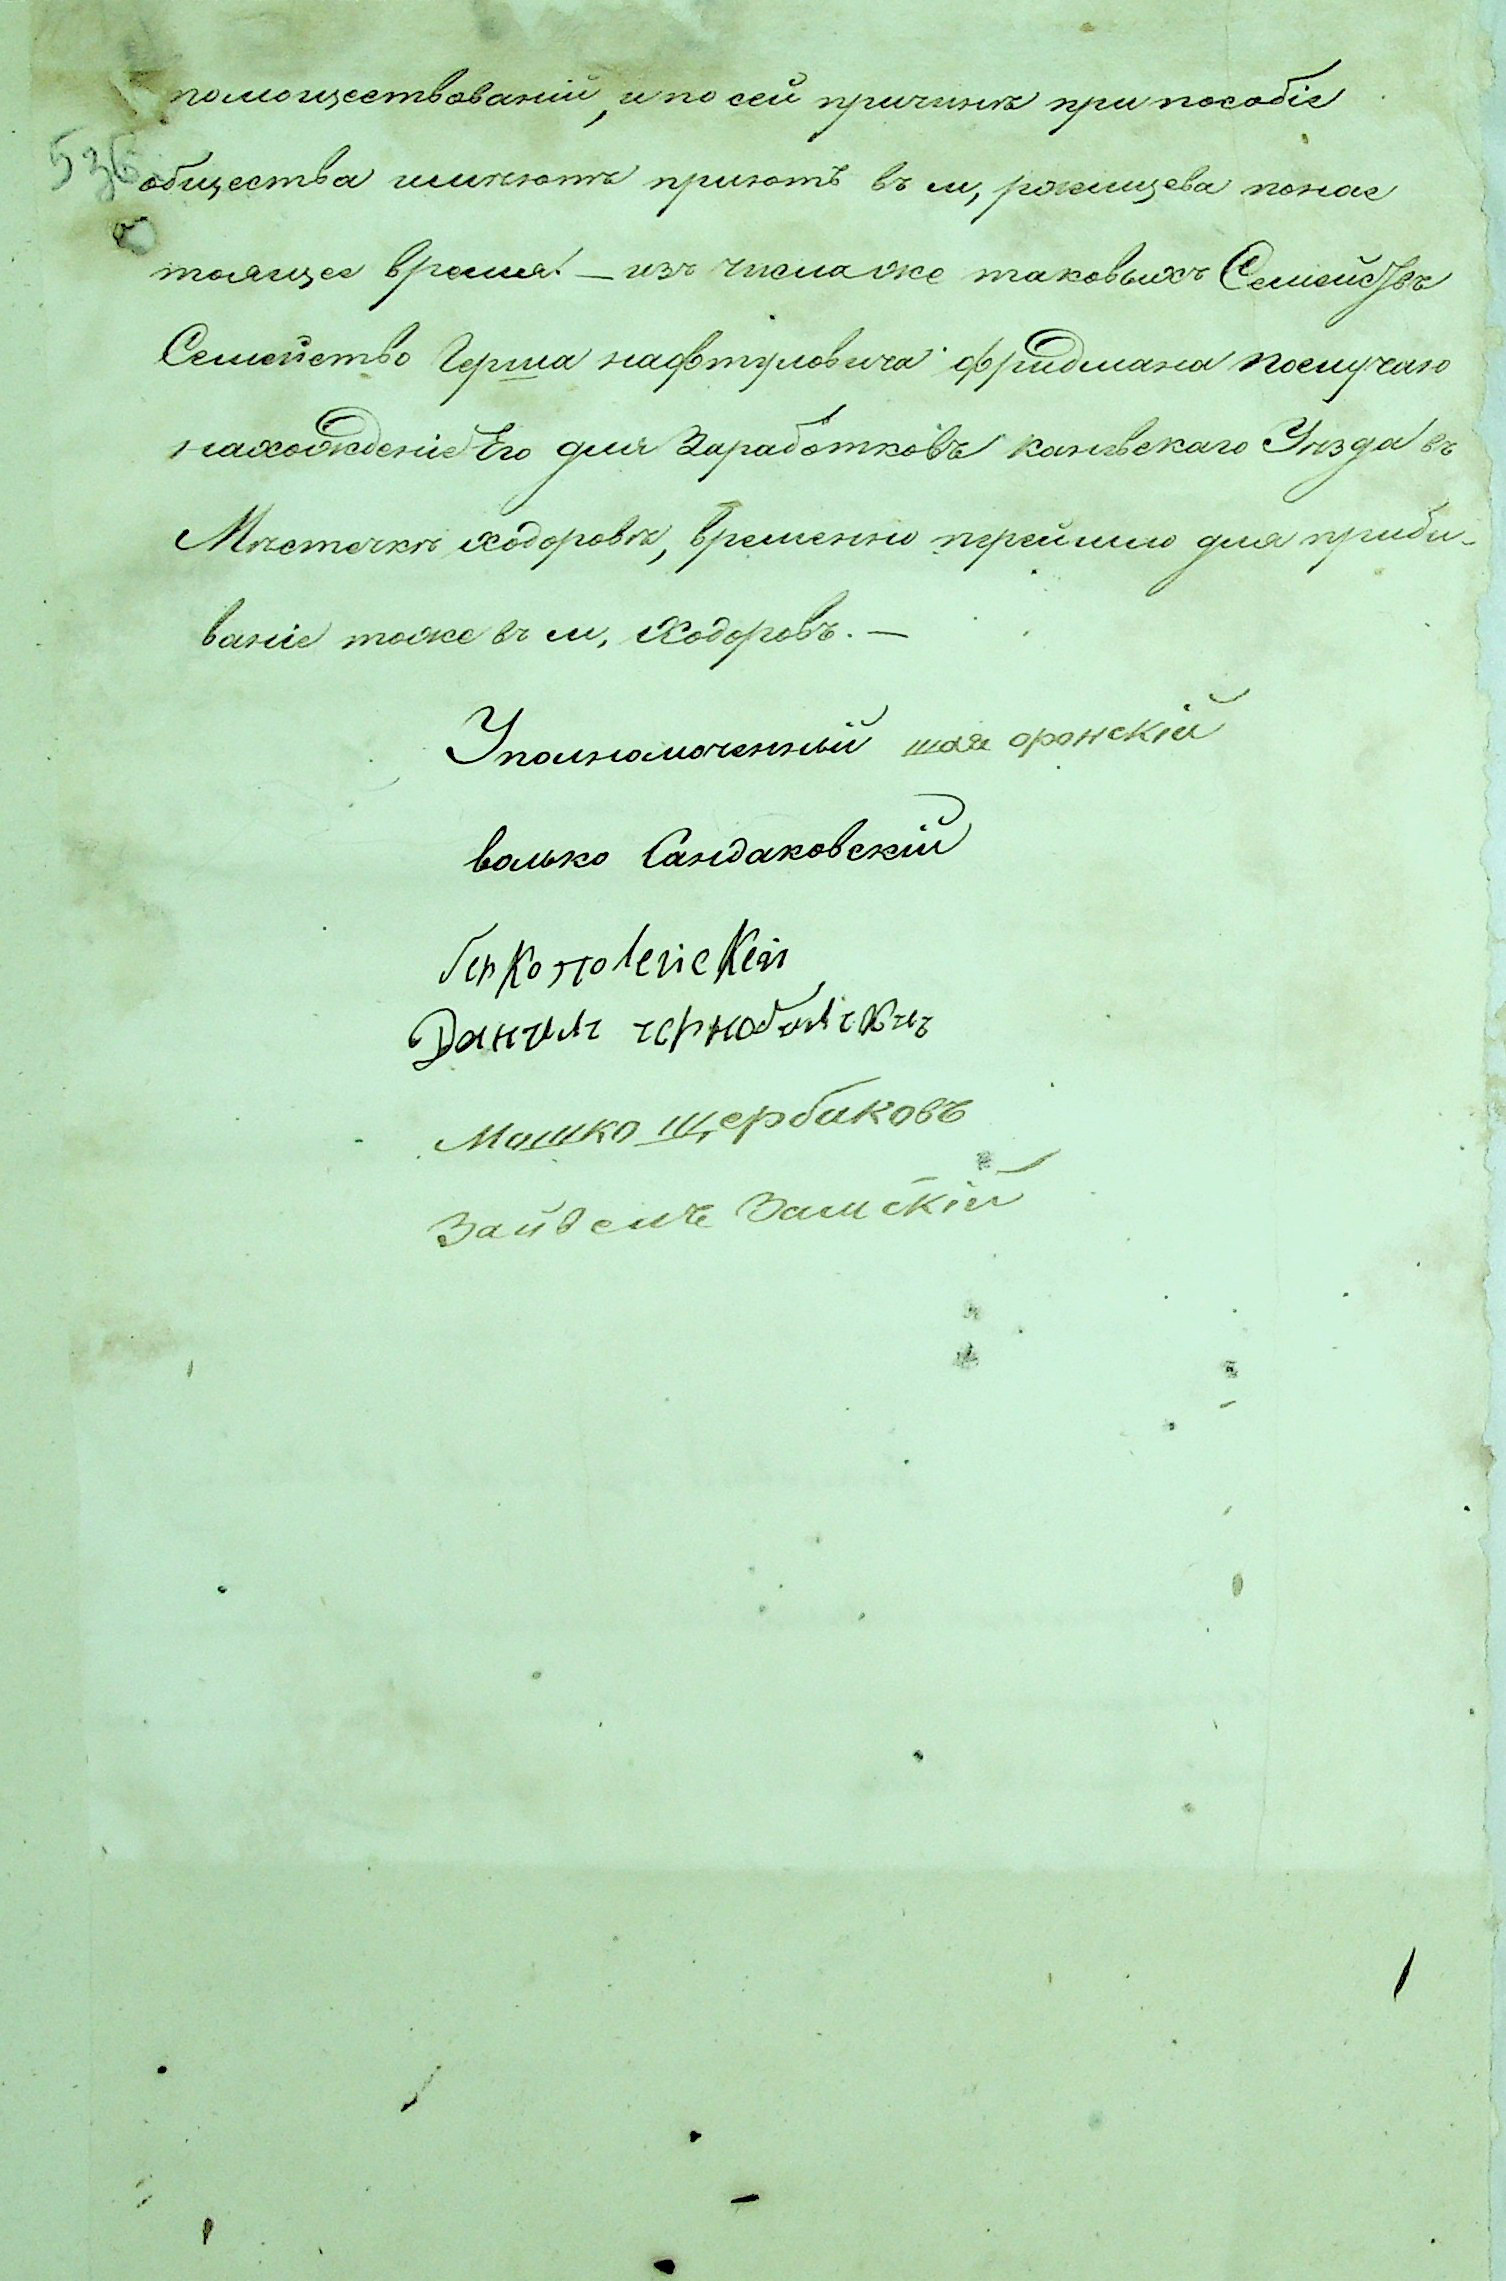 помоществованій, и по сей причинѣ при пособіе
536 общества имѣютъ пріютъ въ м, ржищева понас
тоящее время! — изъ числа же таковыхъ Семействъ
Семейство Герша нафтуловича фридмана послучаю
нахожденіе Его для Заработковъ каневскаго Уѣзда въ
Мѣстечкѣ ходоровѣ, временно перейшло для приби-
ваніе тоже въ м, Ходоровъ. —
Уполномоченный шая оронскій
волько Сандаковскій
берко
Данилъ
Мошко щербаковъ
Зайвелъ Замскій